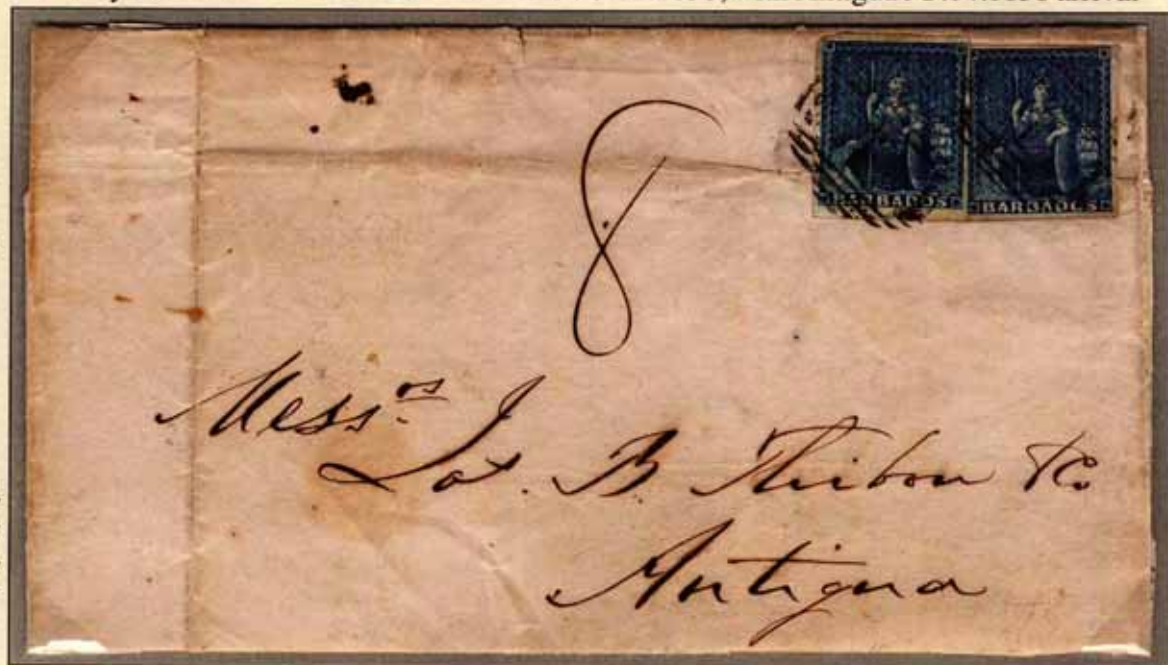 BARBADOS BARBADOS
8
Mess.rs
Jas. B Thibou & Co.
Antigua